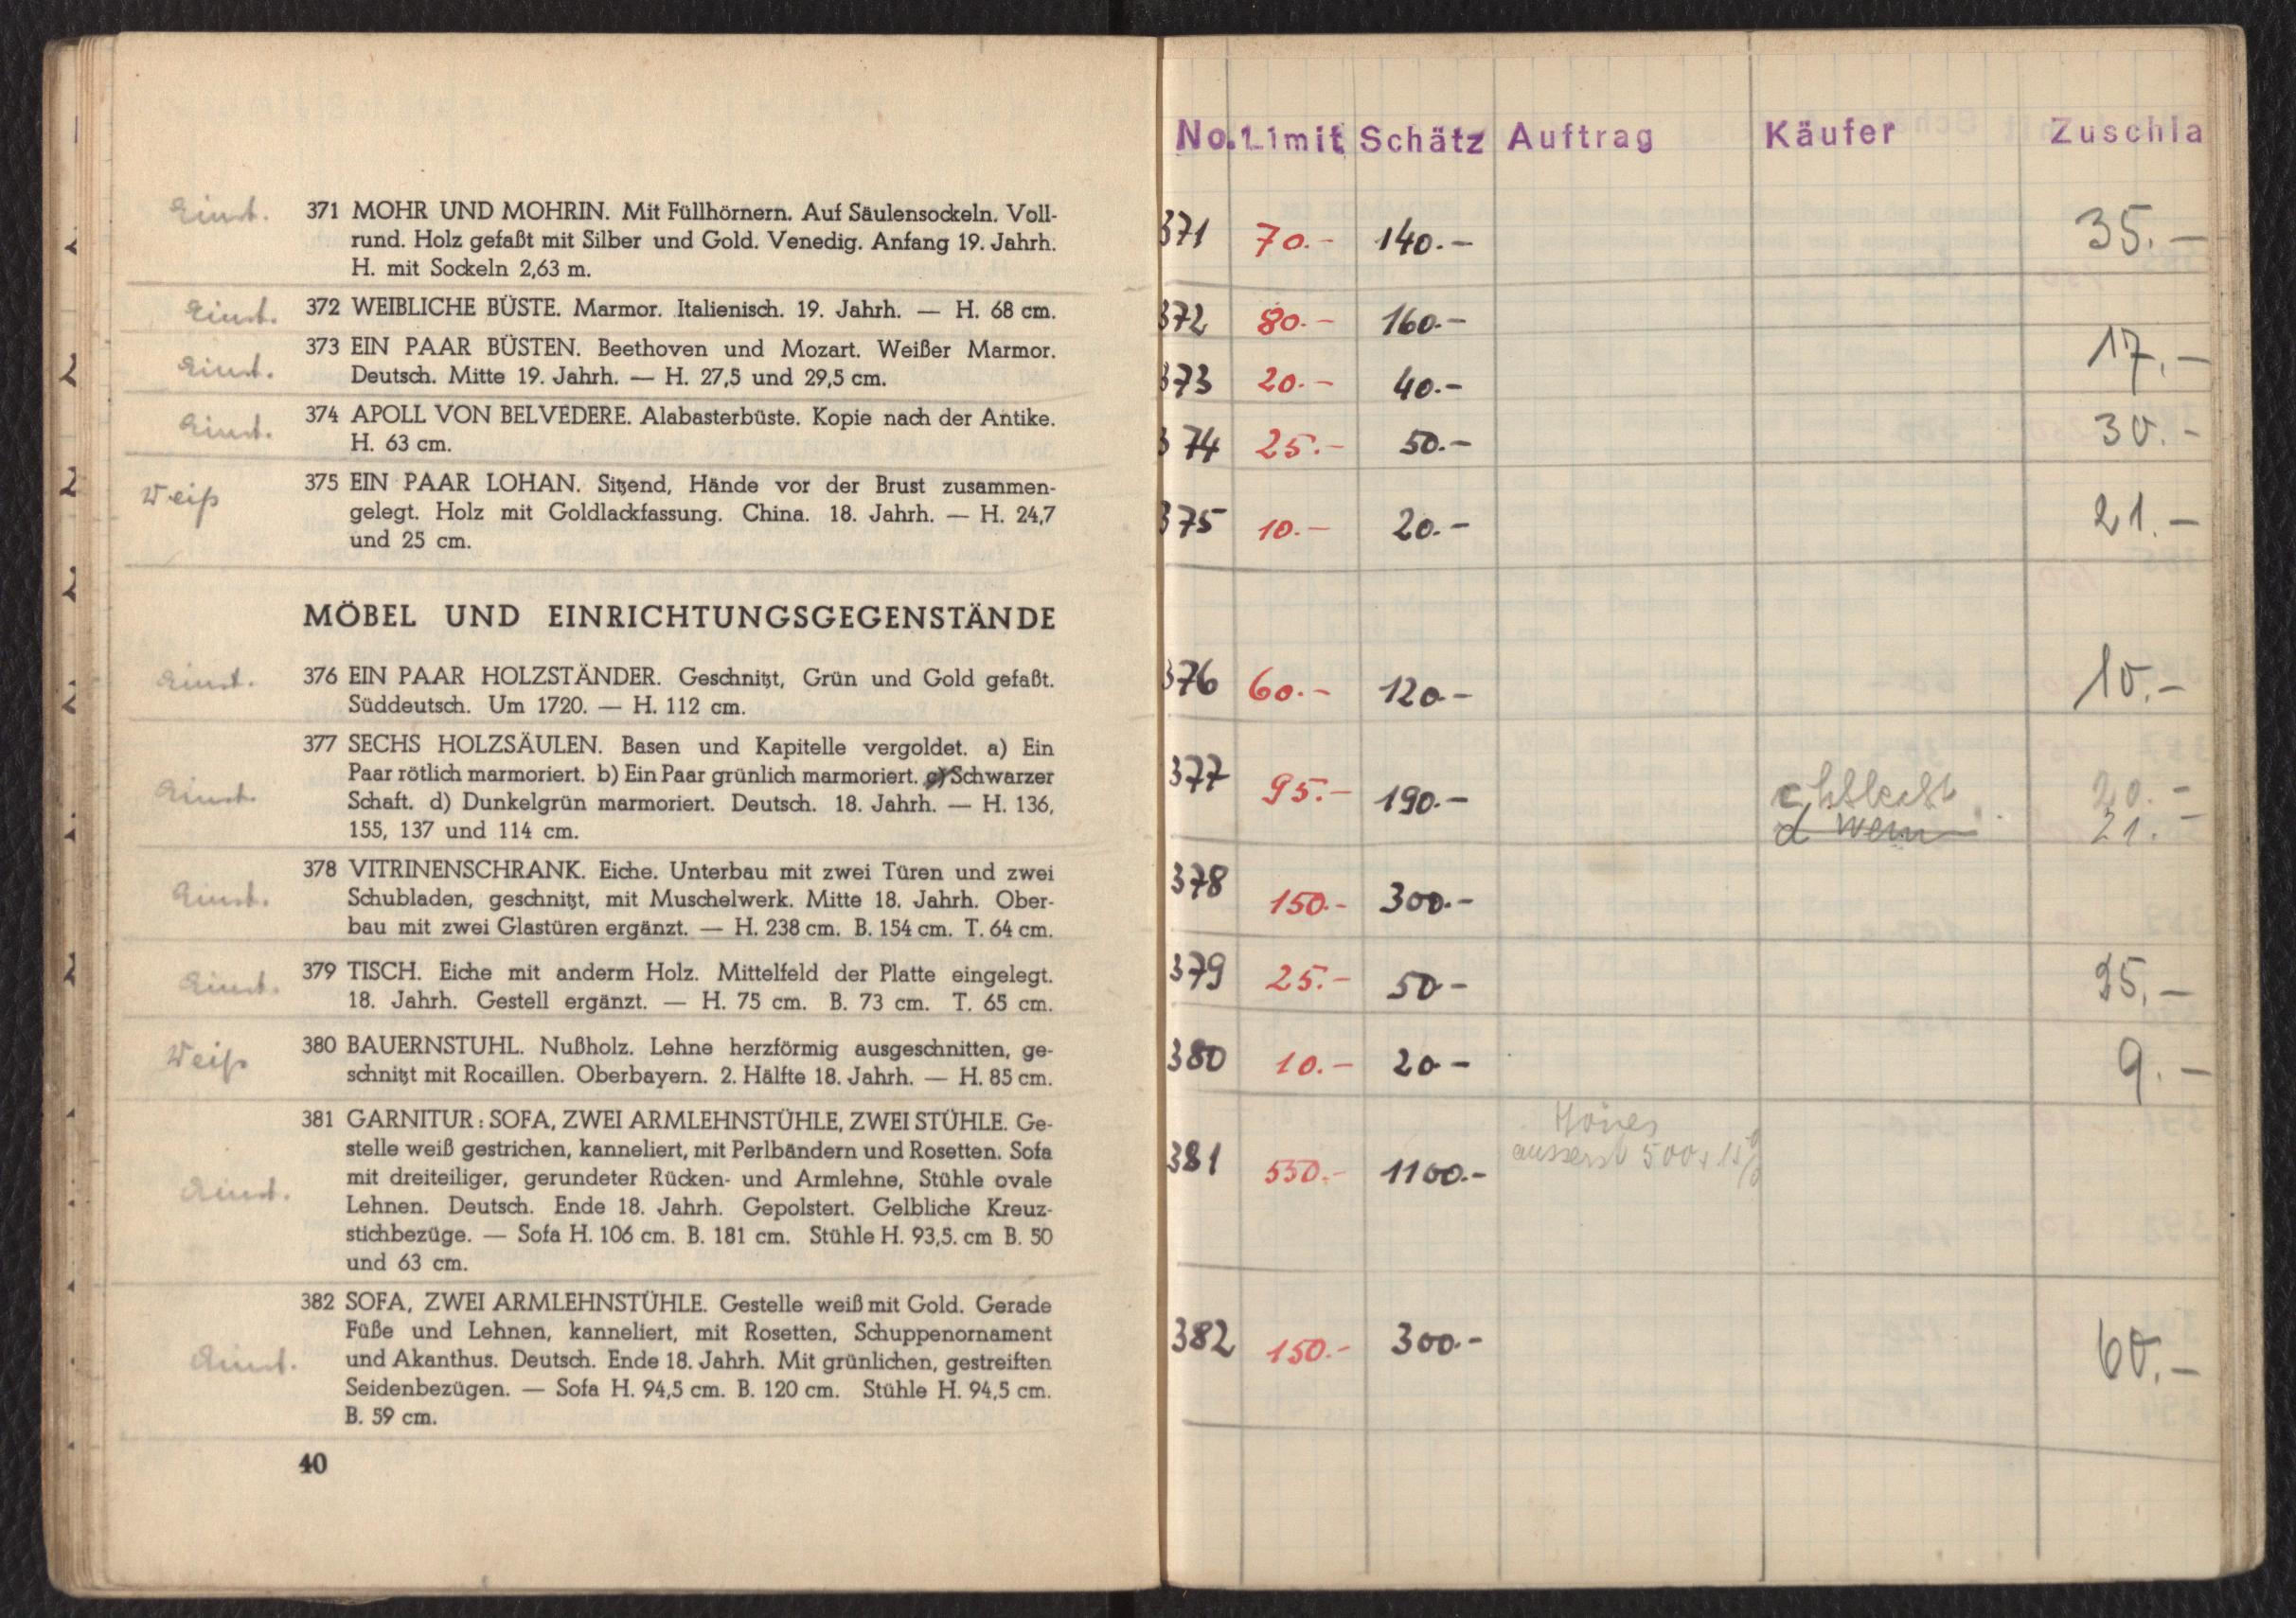 371 MOHR UND MOHRIN. Mit Füllhörnern. Auf Säulensockeln. Voll-
rund. Holz gefaßt mit Silber und Gold. Venedig. Anfang 19. Jahrh.
H. mit Sockeln 2,63 m.
372 WEIBLICHE BÜSTE. Marmor. Italienisch. 19. Jahrh. — H. 68 cm.
373 EIN PAAR BÜSTEN. Beethoven und Mozart. Weißer Marmor.
Deutsch. Mitte 19. Jahrh. — H. 27,5 und 29,5 cm.
374 APOLL VON BELVEDERE. Alabasterbüste. Kopie nach der Antike.
H. 63 cm.
Weiß
375 EIN PAAR LOHAN. Sitzend, Hände vor der Brust zusammen-
gelegt. Holz mit Goldlackfassung. China. 18. Jahrh. — H. 24,7
und 25 cm.
MÖBEL UND EINRICHTUNGSGEGENSTÄNDE
376 EIN PAAR HOLZSTÄNDER. Geschnitzt, Grün und Gold gefaßt.
Süddeutsch. Um 1720. — H. 112 cm.
377 SECHS HOLZSÄULEN. Basen und Kapitelle vergoldet. a) Ein
Paar rötlich marmoriert. b) Ein Paar grünlich marmoriert. c) Schwarzer
Schaft. d) Dunkelgrün marmoriert. Deutsch. 18. Jahrh. — H. 136,
155, 137 und 114 cm.
378 VITRINENSCHRANK. Eiche. Unterbau mit zwei Türen und zwei
Schubladen, geschnitzt, mit Muschelwerk. Mitte 18. Jahrh. Ober-
bau mit zwei Glastüren ergänzt. — H. 238 cm. B. 154 cm. T. 64 cm.
379 TISCH. Eiche mit anderm Holz. Mittelfeld der Platte eingelegt.
18. Jahrh. Gestell ergänzt. — H. 75 cm. B. 73 cm. T. 65 cm.
Weiß
380 BAUERNSTUHL. Nußholz. Lehne herzförmig ausgeschnitten, ge-
schnitzt mit Rocaillen. Oberbayern. 2. Hälfte 18. Jahrh. — H. 85 cm.
381 GARNITUR: SOFA, ZWEI ARMLEHNSTÜHLE, ZWEI STÜHLE. Ge-
stelle weiß gestrichen, kanneliert, mit Perlbändern und Rosetten. Sofa
mit dreiteiliger, gerundeter Rücken- und Armlehne, Stühle ovale
Lehnen. Deutsch. Ende 18. Jahrh. Gepolstert. Gelbliche Kreuz-
stichbezüge. — Sofa H. 106 cm. B. 181 cm. Stühle H. 93,5. cm B. 50
und 63 cm.
382 SOFA, ZWEI ARMLEHNSTÜHLE. Gestelle weiß mit Gold. Gerade
Füße und Lehnen, kanneliert, mit Rosetten, Schuppenornament
und Akanthus. Deutsch. Ende 18. Jahrh. Mit grünlichen, gestreiften
Seidenbezügen. — Sofa H. 94,5 cm. B. 120 cm. Stühle H. 94,5 cm.
B. 59 cm.
40
No. Limit Schätz Auftrag Käufer Zuschla
371 70.- 140.- 35.-
372 80.- 160.-
373 20.- 40.- 17.-
374 25.- 50.- 30.-
375 10.- 20.- 21.-
376 60.- 120- 10.-
377 95.- 190.- c 20.-
d 21.-
378 150.- 300.-
379 25.- 50- 25.-
380 10.- 20- 9.-
381 550.- 1100.- äusserst 500+15%
382 150.- 300.- 60.-